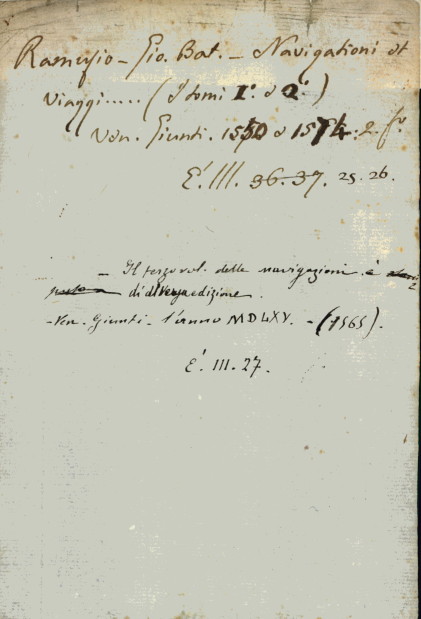 Ramusio - Gio. Bat. - Navigationi et
viaggi..... (I tomi 1º. e 2º.)
Ven. Giunti. 1550 e 1574. 2. fº.
E'. III. 36-37. 25. 26.
- Il terzo vol. delle navigazioni è
di diversa edizione.
- Ven. Giunti - l'anno MDLXV. - (1565).
E'. III. 27.